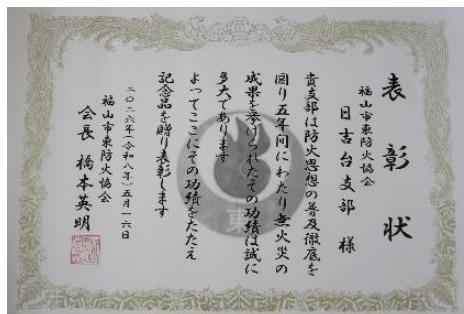 表彰状
福山市東防火協会
日吉台支部 様
貴支部は防火思想の普及徹底を
図り五年間にわたり無火災の
成果を挙げられたその功績は誠に
多大であります
よってここにその功績をたたえ
記念品を贈り表彰します
二〇二六年(令和八年)五月一六日
福山市東防火協会
会長 橋本英明
東